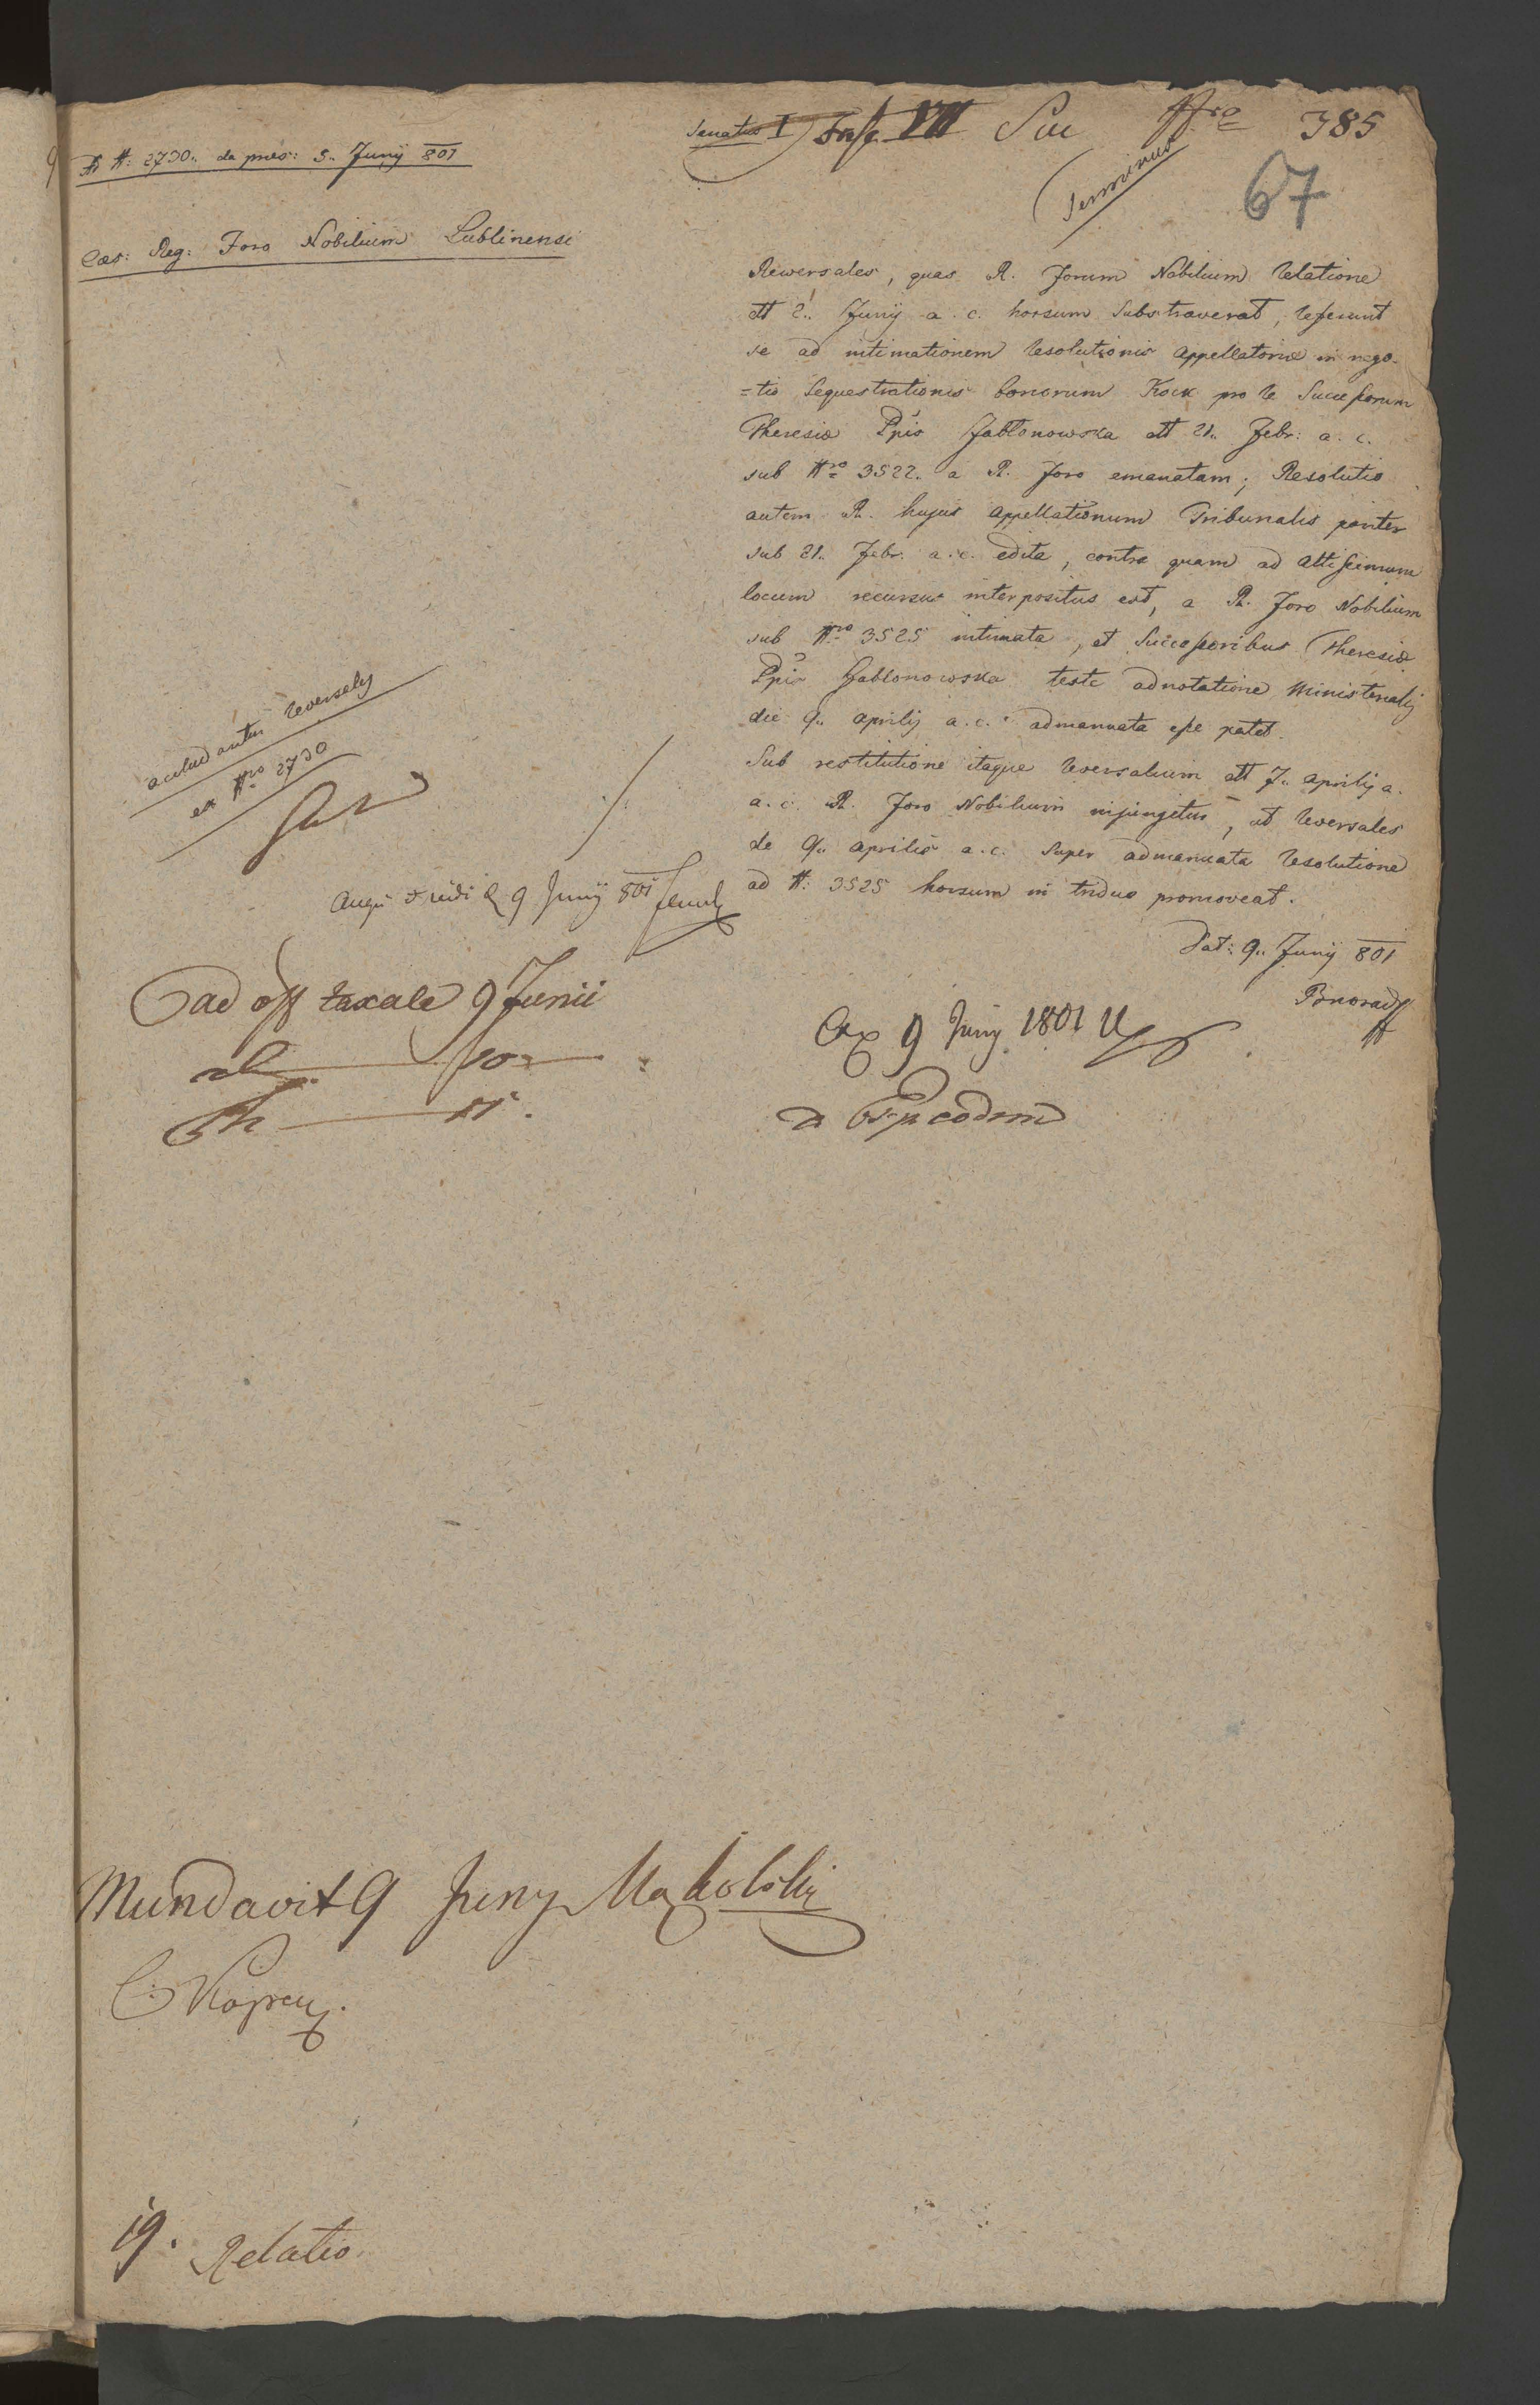 Senatus I Fasc VII Sue Nro 385
Terminus
67
ad N: 2730.. de praes: 5.. Junÿ 801
Caes: Reg: Foro Nobilium Lublinensi
Rewersales, quas R. Forum Nobilium relatione
dtt 2.. Junÿ a. c. horsum substraverat, referunt
se ad intimationem resolutionis appellatoriae in nego-
=tio sequestrationis bonorum Kock pro re Successorum
Theresiae Ppis Jabłonowska dtt 21.. Febr: a. c.
sub Nro 3522. a R. Foro emanatam; Resolutio
autem R. hujus Appellationum Tribunalis pariter
sub 21.. Febr. a. c. edita, contra quam ad altissimum
locum recursus interpositus est, a R. Foro Nobilium
sub Nro 3525 intimata, et Successoribus Theresiae
Ppis Jabłonowska teste adnotatione Ministerialÿ
die 9.. aprilÿ a. c. admanuata esse patet.
Sub restitutione itaque reversalium dtt 7.. aprilÿ a.
a. c. R. Foro Nobilium injungetur, ut reversales
de 9.. aprilis a. c. super admanuata resolutione
ad N: 3525 horsum in triduo promoveat.
Dat: 9.. Junÿ 801
accludantur reversalÿ
ex Nro 2730
vidi 9 Junÿ 801
ad off taxale 9 Junii
Ex 9 Juny 1801
Exp eodem
Mundavit 9 Juny Makolski
C: Kopreux.
19. Relatio